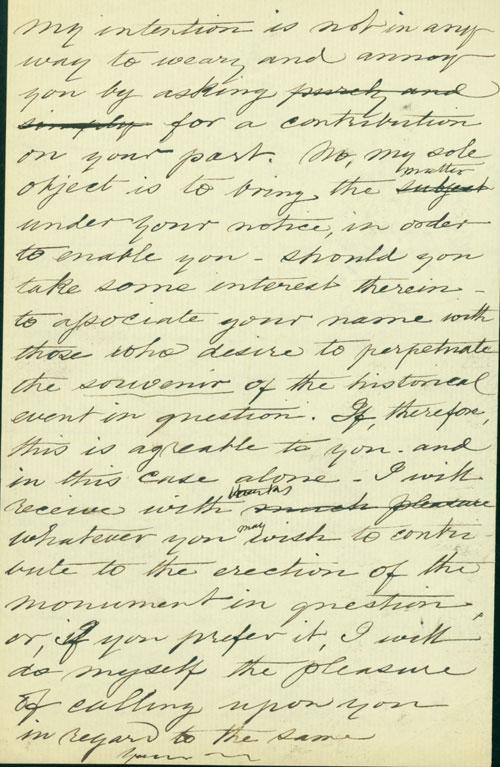 my intention is not in any
way to weary and annoy
you by asking purely and
simply for a contribution
on your part. No, my sole
matter
object is to bring the subject
under your notice, in order
to enable you - should you
take some interest therein -
to associate your name with
those who desire to perpetuate
the souvenir of the historical
event in question. If, therefore,
this is agreable to you - and
in this case alone - I will
thanks
receive with much pleasure
may
whatever you wish to contri-
bute to the erection of the
monument in question,
or, if you prefer it, I will
do myself the pleasure
of calling upon you
in regard to the same
Yours